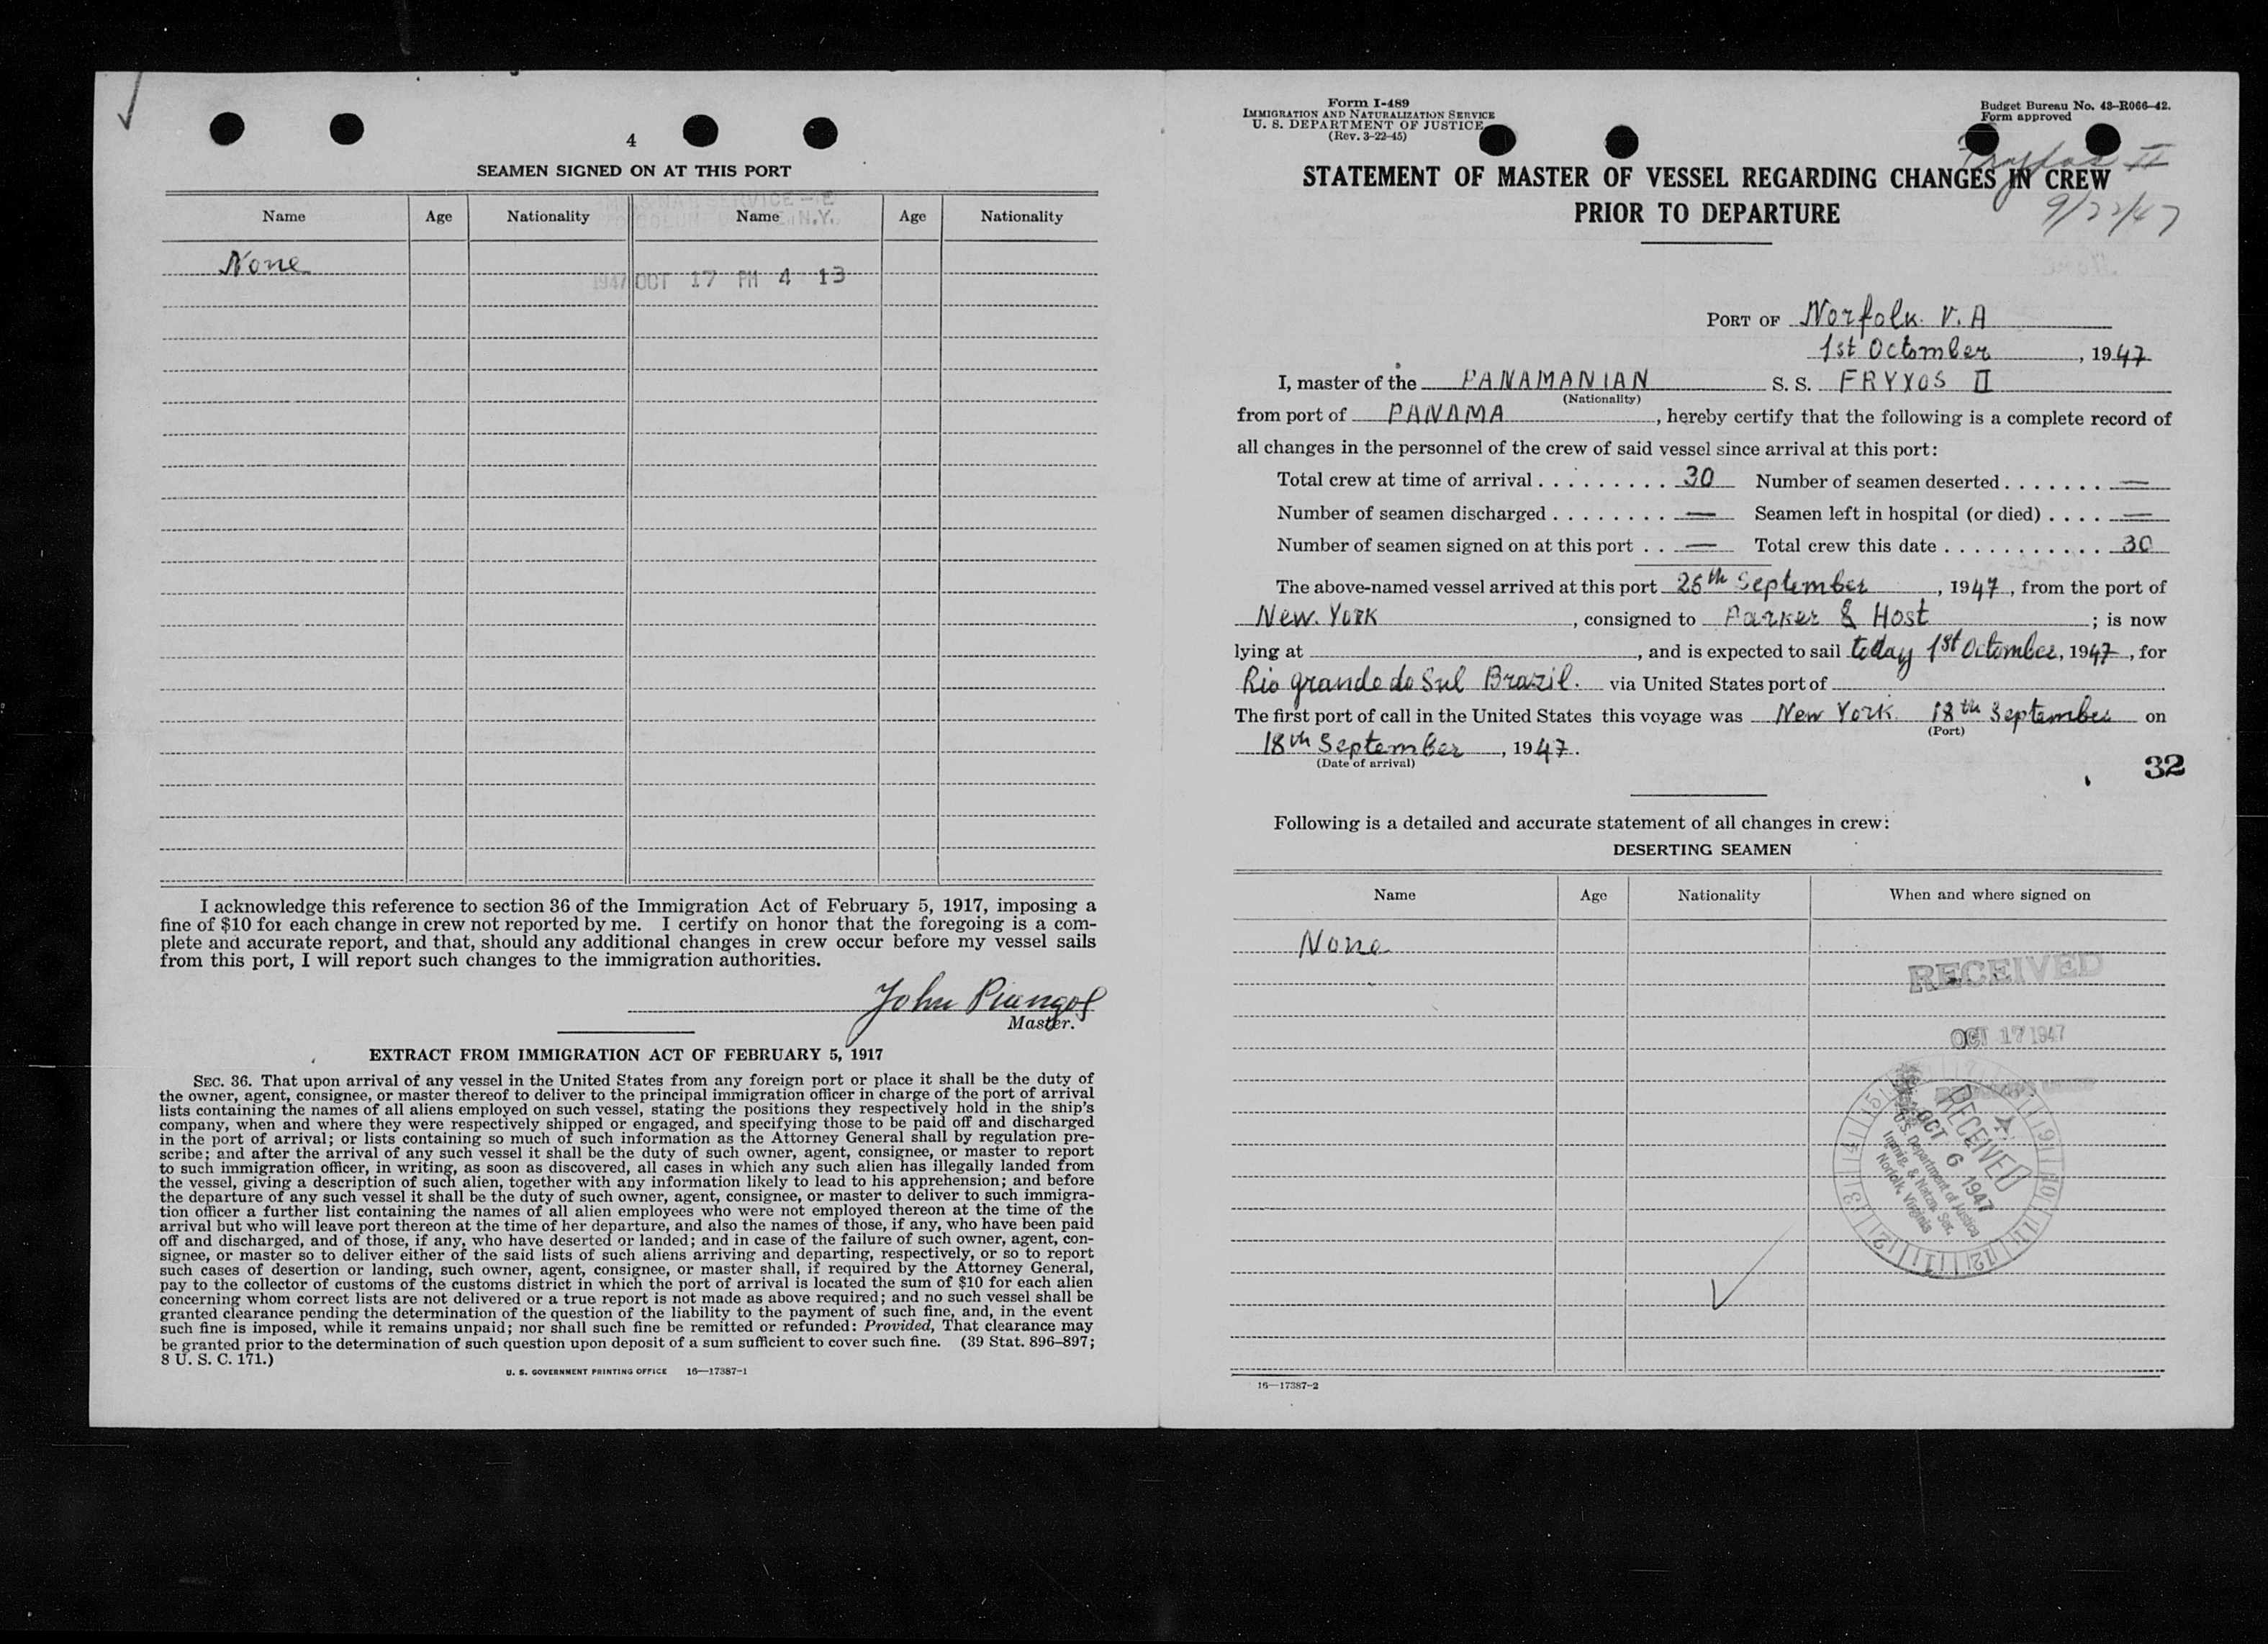 4
SEAMEN SIGNED ON AT THIS PORT
Name Age Nationality Name Age Nationality
None
1947 OCT 17 PM 4 13
I acknowledge this reference to section 36 of the Immigration Act of February 5, 1917, imposing a
fine of $10 for each change in crew not reported by me. I certify on honor that the foregoing is a com-
plete and accurate report, and that, should any additional changes in crew occur before my vessel sails
from this port, I will report such changes to the immigration authorities.
John Piangos
Master.
EXTRACT FROM IMMIGRATION ACT OF FEBRUARY 5, 1917
SEC. 36. That upon arrival of any vessel in the United States from any foreign port or place it shall be the duty of
the owner, agent, consignee, or master thereof to deliver to the principal immigration officer in charge of the port of arrival
lists containing the names of all aliens employed on such vessel, stating the positions they respectively hold in the ship's
company, when and where they were respectively shipped or engaged, and specifying those to be paid off and discharged
in the port of arrival; or lists containing so much of such information as the Attorney General shall by regulation pre-
scribe; and after the arrival of any such vessel it shall be the duty of such owner, agent, consignee, or master to report
to such immigration officer, in writing, as soon as discovered, all cases in which any such alien has illegally landed from
the vessel, giving a description of such alien, together with any information likely to lead to his apprehension; and before
the departure of any such vessel it shall be the duty of such owner, agent, consignee, or master to deliver to such immigra-
tion officer a further list containing the names of all alien employees who were not employed thereon at the time of the
arrival but who will leave port thereon at the time of her departure, and also the names of those, if any, who have been paid
off and discharged, and of those, if any, who have deserted or landed; and in case of the failure of such owner, agent, con-
signee, or master so to deliver either of the said lists of such aliens arriving and departing, respectively, or so to report
such cases of desertion or landing, such owner, agent, consignee, or master shall, if required by the Attorney General,
pay to the collector of customs of the customs district in which the port of arrival is located the sum of $10 for each alien
concerning whom correct lists are not delivered or a true report is not made as above required; and no such vessel shall be
granted clearance pending the determination of the question of the liability to the payment of such fine, and, in the event
such fine is imposed, while it remains unpaid; nor shall such fine be remitted or refunded: Provided, That clearance may
be granted prior to the determination of such question upon deposit of a sum sufficient to cover such fine. (39 Stat. 896–897;
8 U. S. C. 171.)
U. S. GOVERNMENT PRINTING OFFICE 16—17387-1
Form I-489
IMMIGRATION AND NATURALIZATION SERVICE
U. S. DEPARTMENT OF JUSTICE
(Rev. 3-22-45)
Budget Bureau No. 43-R066-42.
Form approved
II
9/22/47
STATEMENT OF MASTER OF VESSEL REGARDING CHANGES IN CREW
PRIOR TO DEPARTURE
PORT OF Norfolk V.A
1st Octomber, 1947
I, master of the PANAMANIAN S. S. FRYXOS II
(Nationality)
from port of PANAMA, hereby certify that the following is a complete record of
all changes in the personnel of the crew of said vessel since arrival at this port:
Total crew at time of arrival . . . . . . . . . 30 Number of seamen deserted . . . . . . . —
Number of seamen discharged . . . . . . . . — Seamen left in hospital (or died) . . . . —
Number of seamen signed on at this port . . — Total crew this date . . . . . . . . . . . 30
The above-named vessel arrived at this port 25th September, 1947, from the port of
New York, consigned to Parker & Host; is now
lying at , and is expected to sail today 1st Octomber, 1947, for
Rio grande do Sul Brazil. via United States port of
The first port of call in the United States this voyage was New York 18th September on
(Port)
18th September, 1947.
(Date of arrival)
32
Following is a detailed and accurate statement of all changes in crew:
DESERTING SEAMEN
Name Age Nationality When and where signed on
None
RECEIVED
OCT 17 1947
RECEIVED
OCT 6 1947
U.S. Department of Justice
Immig. & Natzn. Ser.
Norfolk, Virginia
16—17387-2